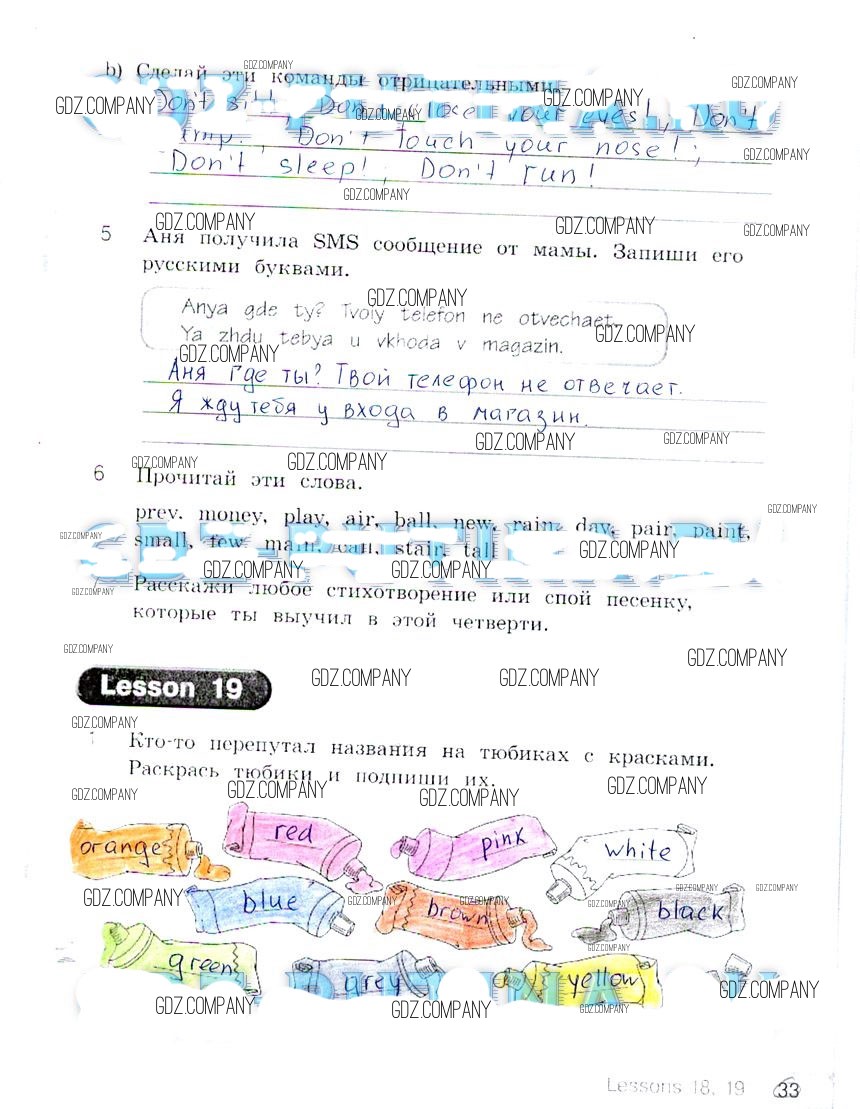 b) Сделай эти команды отрицательными
Don't sit!, Don't close your eyes!, Don't
Don't Touch your nose!;
Don't sleep!, Don't run!
5 Аня получила SMS сообщение от мамы. Запиши его
русскими буквами.
Anya gde ty? Tvoiy telefon ne otvechaet.
Ya zhdu tebya u vkhoda v magazin.
Аня где ты? Твой телефон не отвечает.
Я жду тебя у входа в магазин.
6 Прочитай эти слова.
prey, money, play, air, ball, new, rain, day, pair, paint,
small, few, main, wall, stair, tall
Расскажи любое стихотворение или спой песенку,
которые ты выучил в этой четверти.
Lesson 19
1 Кто-то перепутал названия на тюбиках с красками.
Раскрась тюбики и подпиши их.
orange red pink white
blue brown black
green grey yellow
Lessons 18, 19 33
GDZ.COMPANY